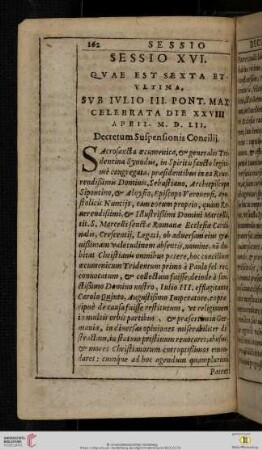 162 SESSIO
SESSIO XVI.
QVAE EST SEXTA ET
VLTIMA,
SVB IVLIO III. PONT. MAX
CELEBRATA DIE XXVIII
APRIL. M. D. LII.
Decretum Suspensionis Concilij.
SAcrosancta œcumenica, & generalis Tri-
dentina Synodus, in Spiritu sancto legiti-
mè congregata, præsidentibus in ea Reue-
rendissimis Dominis, Sebastiano, Archiepiscopo
Sipontino, & Aloysio, Episcopo Veronensi, apo-
stolicis Nuncijs, tam eorum proprio, quàm Re-
uerendissimi, & Illustrissimi Domini Marcelli,
tit. S. Marcelli sanctæ Romanæ Ecclesiæ Cardi-
nalis, Crescentij, Legati, ob aduersam eius gra-
uissimam valetudinem absentis, nomine, nō du-
bitat Christianis omnibus patere, hoc concilium
œcumenicum Tridenti primò à Paulo fel. rec.
conuocatum, & collectum fuisse, deinde à san-
ctissimo Domino nostro, Iulio III. efflagitante
Carolo Quinto, Augustissimo Imperatore, eo præ-
cipuè de causa fuisse restitutum, vt religionem
in multis orbis partibus, & præsertim in Ger-
mania, in diuersas opiniones miserabiliter di-
stractam, in statum pristinum reuocaret; abusus,
& mores Christianorum corruptissimos emen-
daret: cumque ad hoc agendum quamplurimi
Patres